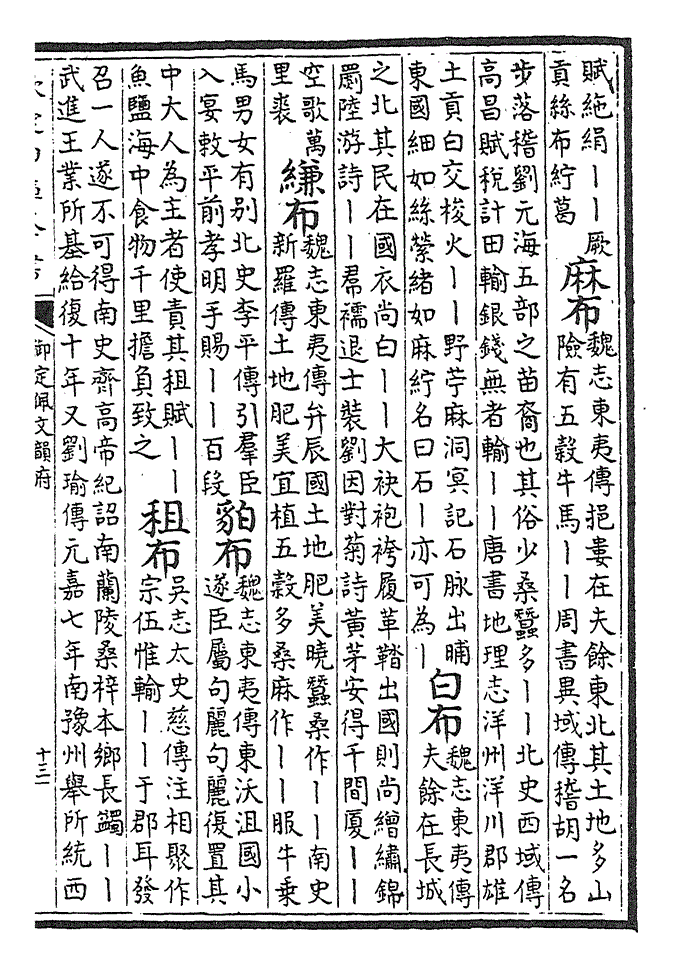 賦絁絹——厥
貢絲布紵葛
麻布
魏志東夷傳挹婁在夫餘東北其土地多山
險有五穀牛馬——周書異域傳稽胡一名
步落稽劉元海五部之苗裔也其俗少桑蠶多——北史西域傳
高昌賦稅計田輸銀錢無者輸——唐書地理志洋州洋川郡雄
土貢白交梭火——野苧麻洞冥記石脉出晡
東國細如絲縈緒如麻紵名曰石—亦可為—
白布
魏志東夷傳
夫餘在長城
之北其民在國衣尚白——大袂袍袴履革鞜出國則尚繒繡錦
罽陸游詩——帬襦退士裝劉因對菊詩黃茅安得千間厦——
空歌萬
里裘
縑布
魏志東夷傳弁辰國土地肥美曉蠶桑作——南史
新羅傳土地肥美宜植五穀多桑麻作——服牛乘
馬男女有别北史李平傳引羣臣
入宴敕平前孝明手賜——百段
貊布
魏志東夷傳東沃沮國小
遂臣屬句麗句麗復置其
中大人為主者使責其租賦——
魚鹽海中食物千里擔負致之
租布
吳志太史慈傳注相聚作
宗伍惟輸——于郡耳發
召一人遂不可得南史齊高帝紀詔南蘭陵桑梓本鄉長蠲——
武進王業所基給復十年又劉瑜傳元嘉七年南豫州舉所統西
御定佩文韻府
十三